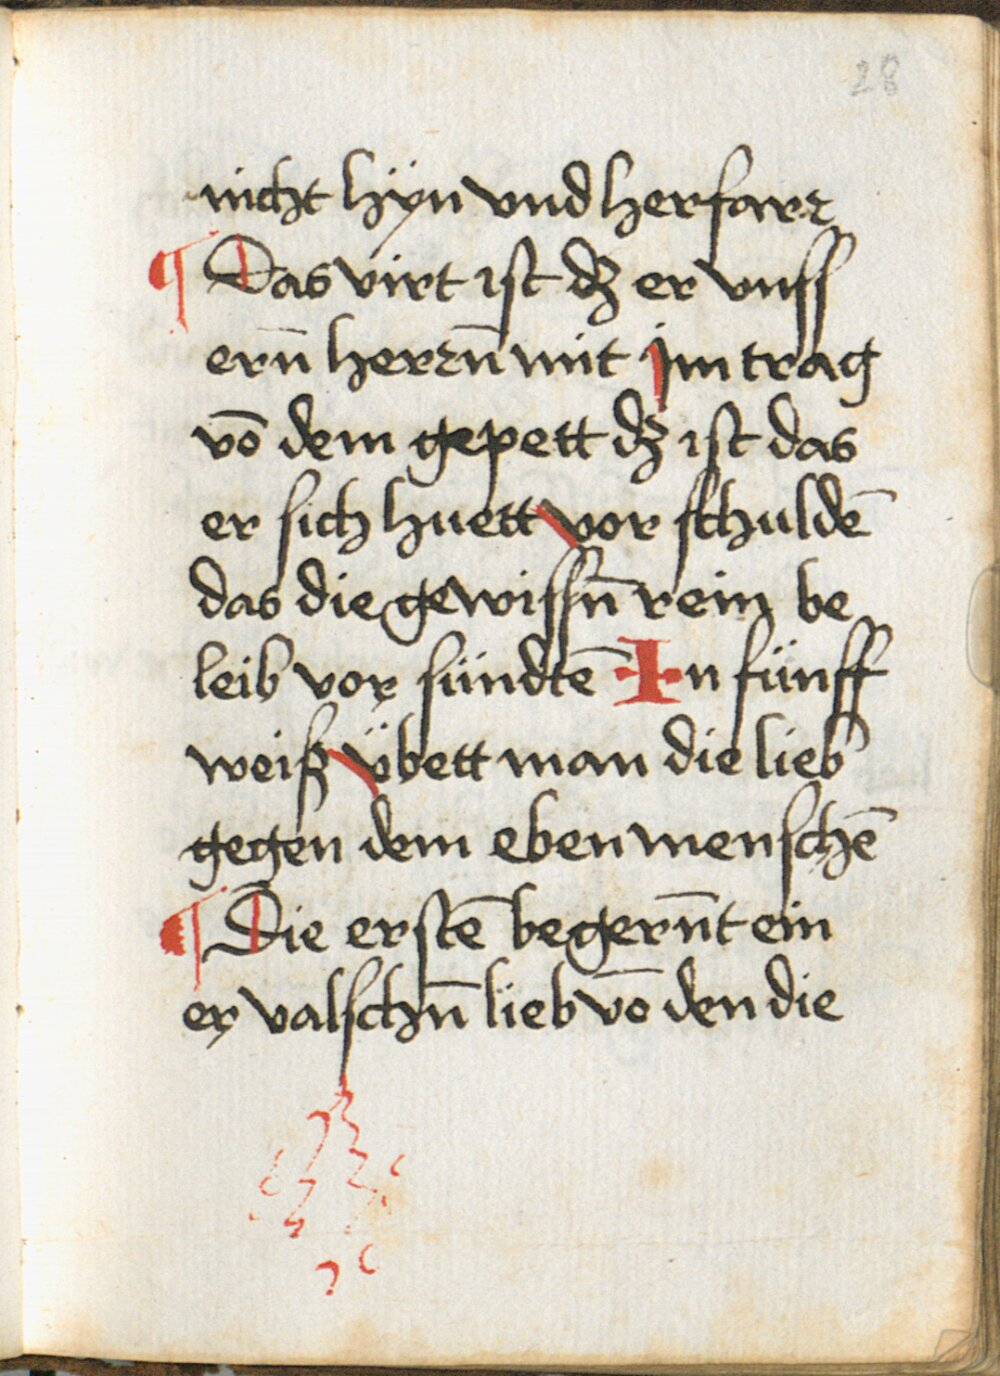 28
nicht hÿn vnd herfarr
¶ Das virt ist dʒ er vnſſ
ern̄ herrn̄ mit jm trag
vō dem gepett dʒ ist das
er sich huett vor schuldē
das die gewiſſn̄ rein be
leib vor sündtē In fünff
weiß übett man die lieb
gegen dem ebenmenschē
¶ Die erstē begern̄t ein
er valschn̄ lieb vō den die